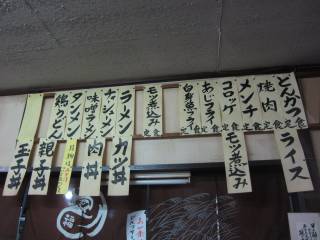 とんかつ定食
焼肉定食
メンチ定食
コロッケ定食
あじフライ定食
白身魚フライ定食
モツ煮込み定食
ラーメン
チャーシューメン
味噌ラーメン
タンメン
鶏うどん
ライス
モツ煮込み
カツ丼
肉丼
親子丼
玉子丼